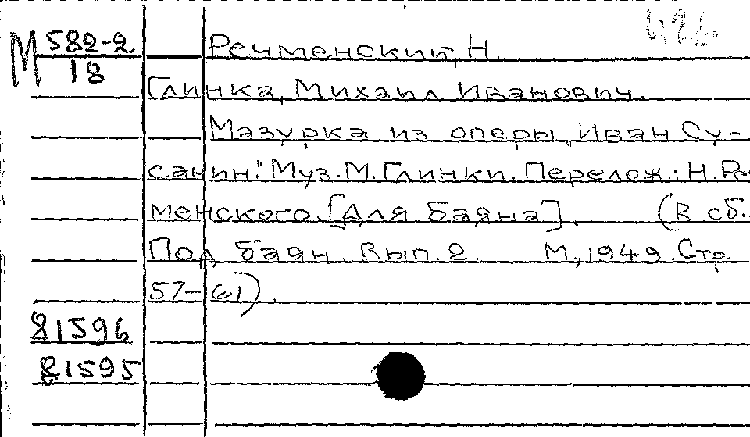 М 582-2
18
Речменский, Н.
Глинка, Михаил Иванович.
Мазурка из оперы „Иван Су-
санин". Муз. М. Глинки. Перелож.: Н. Ре
менского. [Для баяна]. (В сб.
Под баян. Вып. 2. М., 1949. Стр.
57-61).
81596
81595